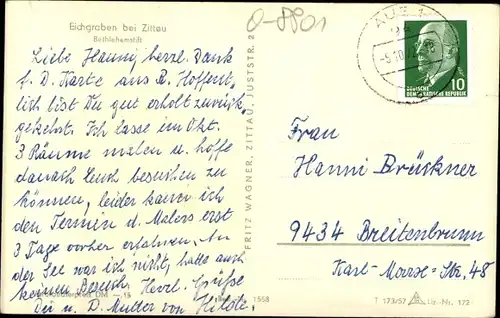 Eichgraben bei Zittau
Bethlehemstift
Liebe Hanni, herzl. Dank
f. D. Karte aus R. Hoffent-
lich bist Du gut erholt zurück-
gekehrt. Ich lasse im Okt.
3 Räume malen u. hoffe
danach Euch besuchen zu
können, leider kann ich
den Termin d. Malers erst
3 Tage vorher erfahren. An
der See war ich nicht, hatte auch
keinen Besuch. Herzl. Grüße
Dir u. D. Mutter von Hilde.
1558
FRITZ WAGNER, ZITTAU, JUSTSTR. 2
O-8801
AUE 1
10
DEUTSCHE
DEMOKRATISCHE REPUBLIK
Frau
Hanni Brückner
9434 Breitenbrunn
Karl-Marx-Str. 48
T 173/57 Liz.-Nr. 172